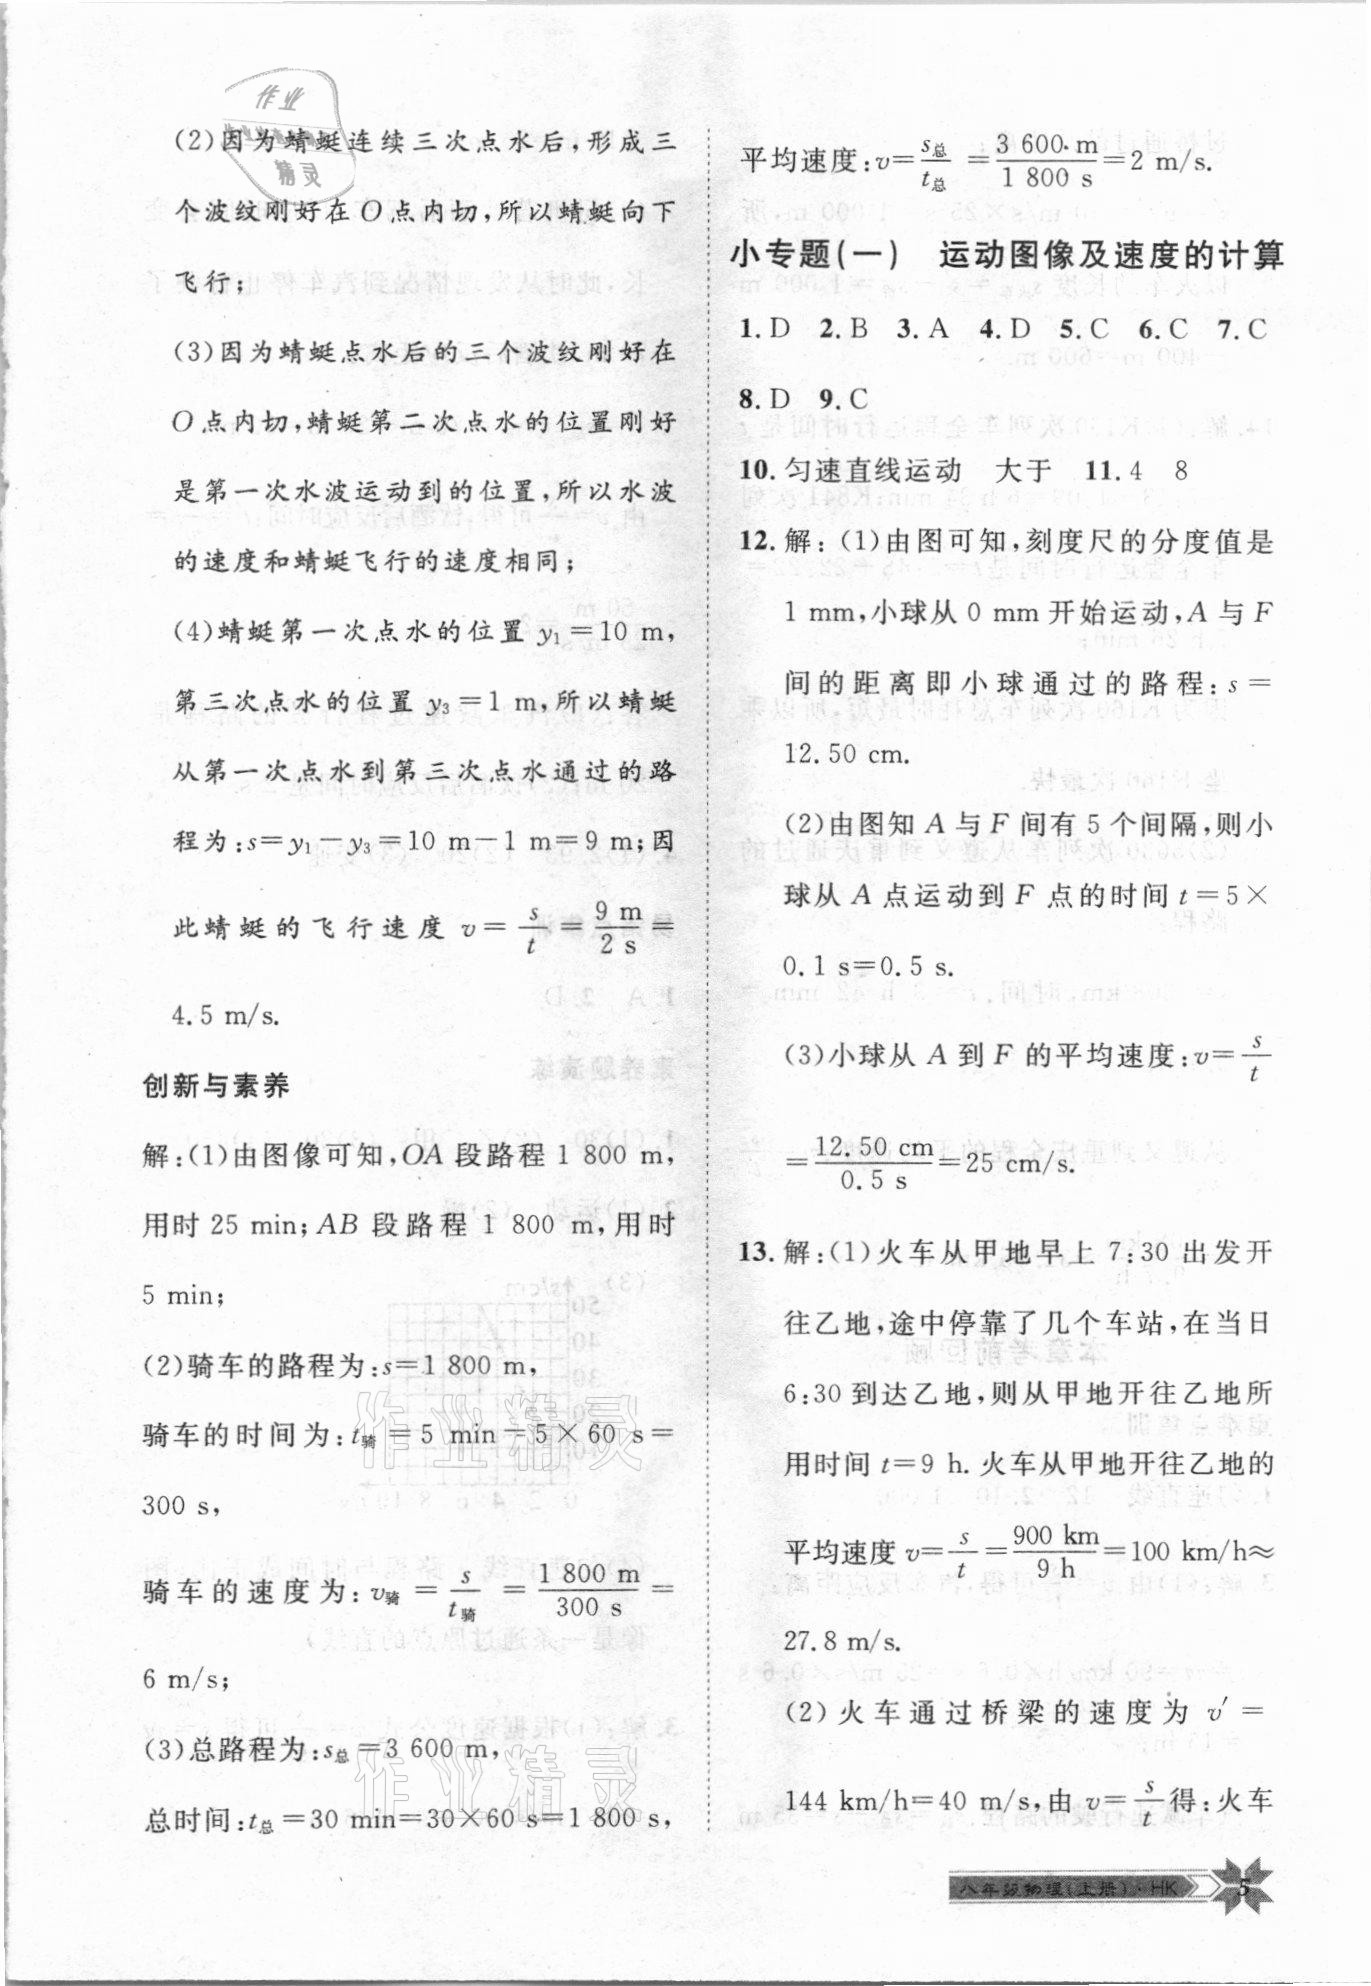 作业
精灵
(2)因为蜻蜓连续三次点水后,形成三
个波纹刚好在O点内切,所以蜻蜓向下
飞行;
(3)因为蜻蜓点水后的三个波纹刚好在
O点内切,蜻蜓第二次点水的位置刚好
是第一次水波运动到的位置,所以水波
的速度和蜻蜓飞行的速度相同;
(4)蜻蜓第一次点水的位置 y₁=10 m,
第三次点水的位置 y₃=1 m,所以蜻蜓
从第一次点水到第三次点水通过的路
程为:s=y₁-y₃=10 m-1 m=9 m;因
此蜻蜓的飞行速度 v=s/t=9 m/2 s=
4.5 m/s.
创新与素养
解:(1)由图像可知,OA段路程1 800 m,
用时25 min;AB段路程1 800 m,用时
5 min;
(2)骑车的路程为:s=1 800 m,
骑车的时间为:t骑=5 min=5×60 s=
300 s,
骑车的速度为:v骑=s/t骑=1 800 m/300 s=
6 m/s;
(3)总路程为:s总=3 600 m,
总时间:t总=30 min=30×60 s=1 800 s,
平均速度:v=s总/t总=3 600 m/1 800 s=2 m/s.
小专题(一) 运动图像及速度的计算
1.D 2.B 3.A 4.D 5.C 6.C 7.C
8.D 9.C
10.匀速直线运动 大于 11.4 8
12.解:(1)由图可知,刻度尺的分度值是
1 mm,小球从0 mm开始运动,A与F
间的距离即小球通过的路程:s=
12.50 cm.
(2)由图知A与F间有5个间隔,则小
球从A点运动到F点的时间t=5×
0.1 s=0.5 s.
(3)小球从A到F的平均速度:v=s/t
=12.50 cm/0.5 s=25 cm/s.
13.解:(1)火车从甲地早上7:30出发开
往乙地,途中停靠了几个车站,在当日
6:30到达乙地,则从甲地开往乙地所
用时间t=9 h.火车从甲地开往乙地的
平均速度v=s/t=900 km/9 h=100 km/h≈
27.8 m/s.
(2)火车通过桥梁的速度为v′=
144 km/h=40 m/s,由v=s/t得:火车
作业精灵
作业精灵
八年级物理(上册)·HK 5